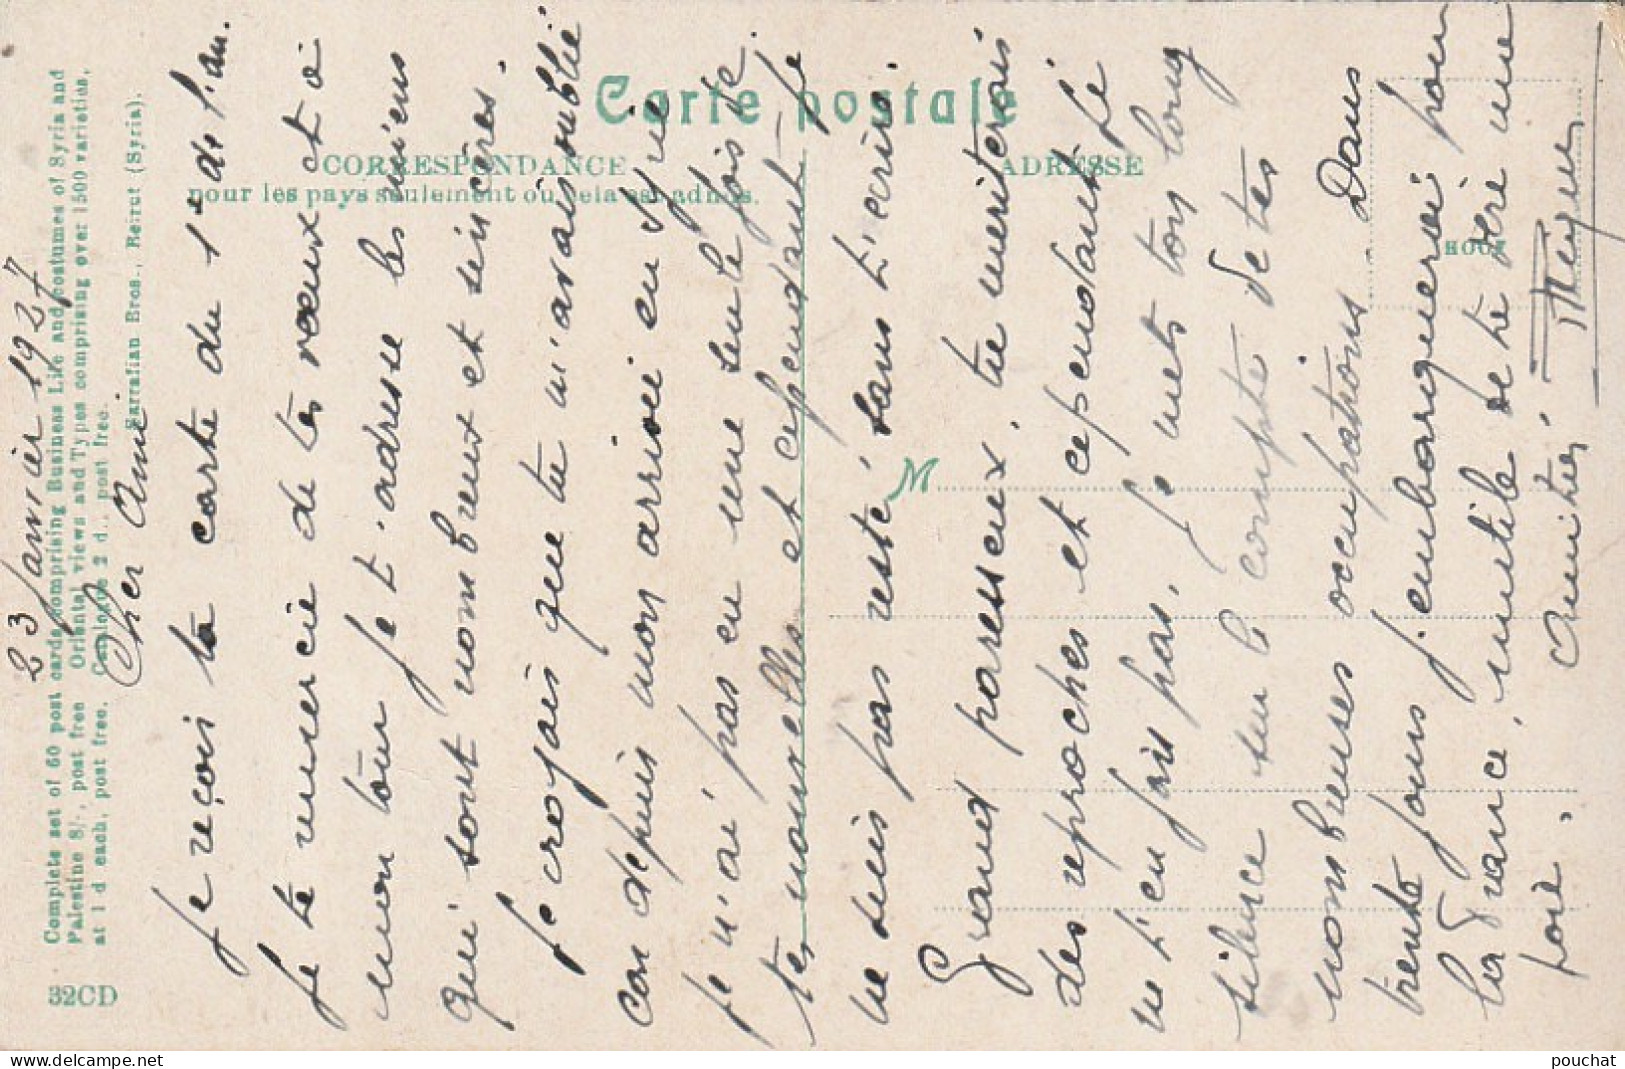 Carte postale
CORRESPONDANCE
pour les pays seulement où cela est admis.
ADRESSE
M
32CD
Complete set of 60 post cards comprising Business Life and costumes of Syria and
Palestine 8/-, post free Oriental views and Types comprising over 1500 varieties,
at 1 d each, post free. Catalogue 2 d., post free.
Sarrafian Bros., Beirut (Syria).
23 Janvier 1927
Cher Ami
Je reçois ta carte du 1er de l'an.
Je te remercie de tes vœux et à
mon tour je t'adresse les miens
qui sont nombreux et sincères.
Je croyais que tu m'avais oublié
car depuis mon arrivée en Syrie
je n'ai pas eu une seule fois de
tes nouvelles et cependant je
ne suis pas resté sans t'écrire.
Grand paresseux, tu meriterais
des reproches et cependant je
ne t'en fais pas, je mets ton long
silence sur le compte de tes
nombreuses occupations Dans
trente jours j'embarquerai pour
la France, inutile de te dire ma
joie. Amitiés.
pouchat